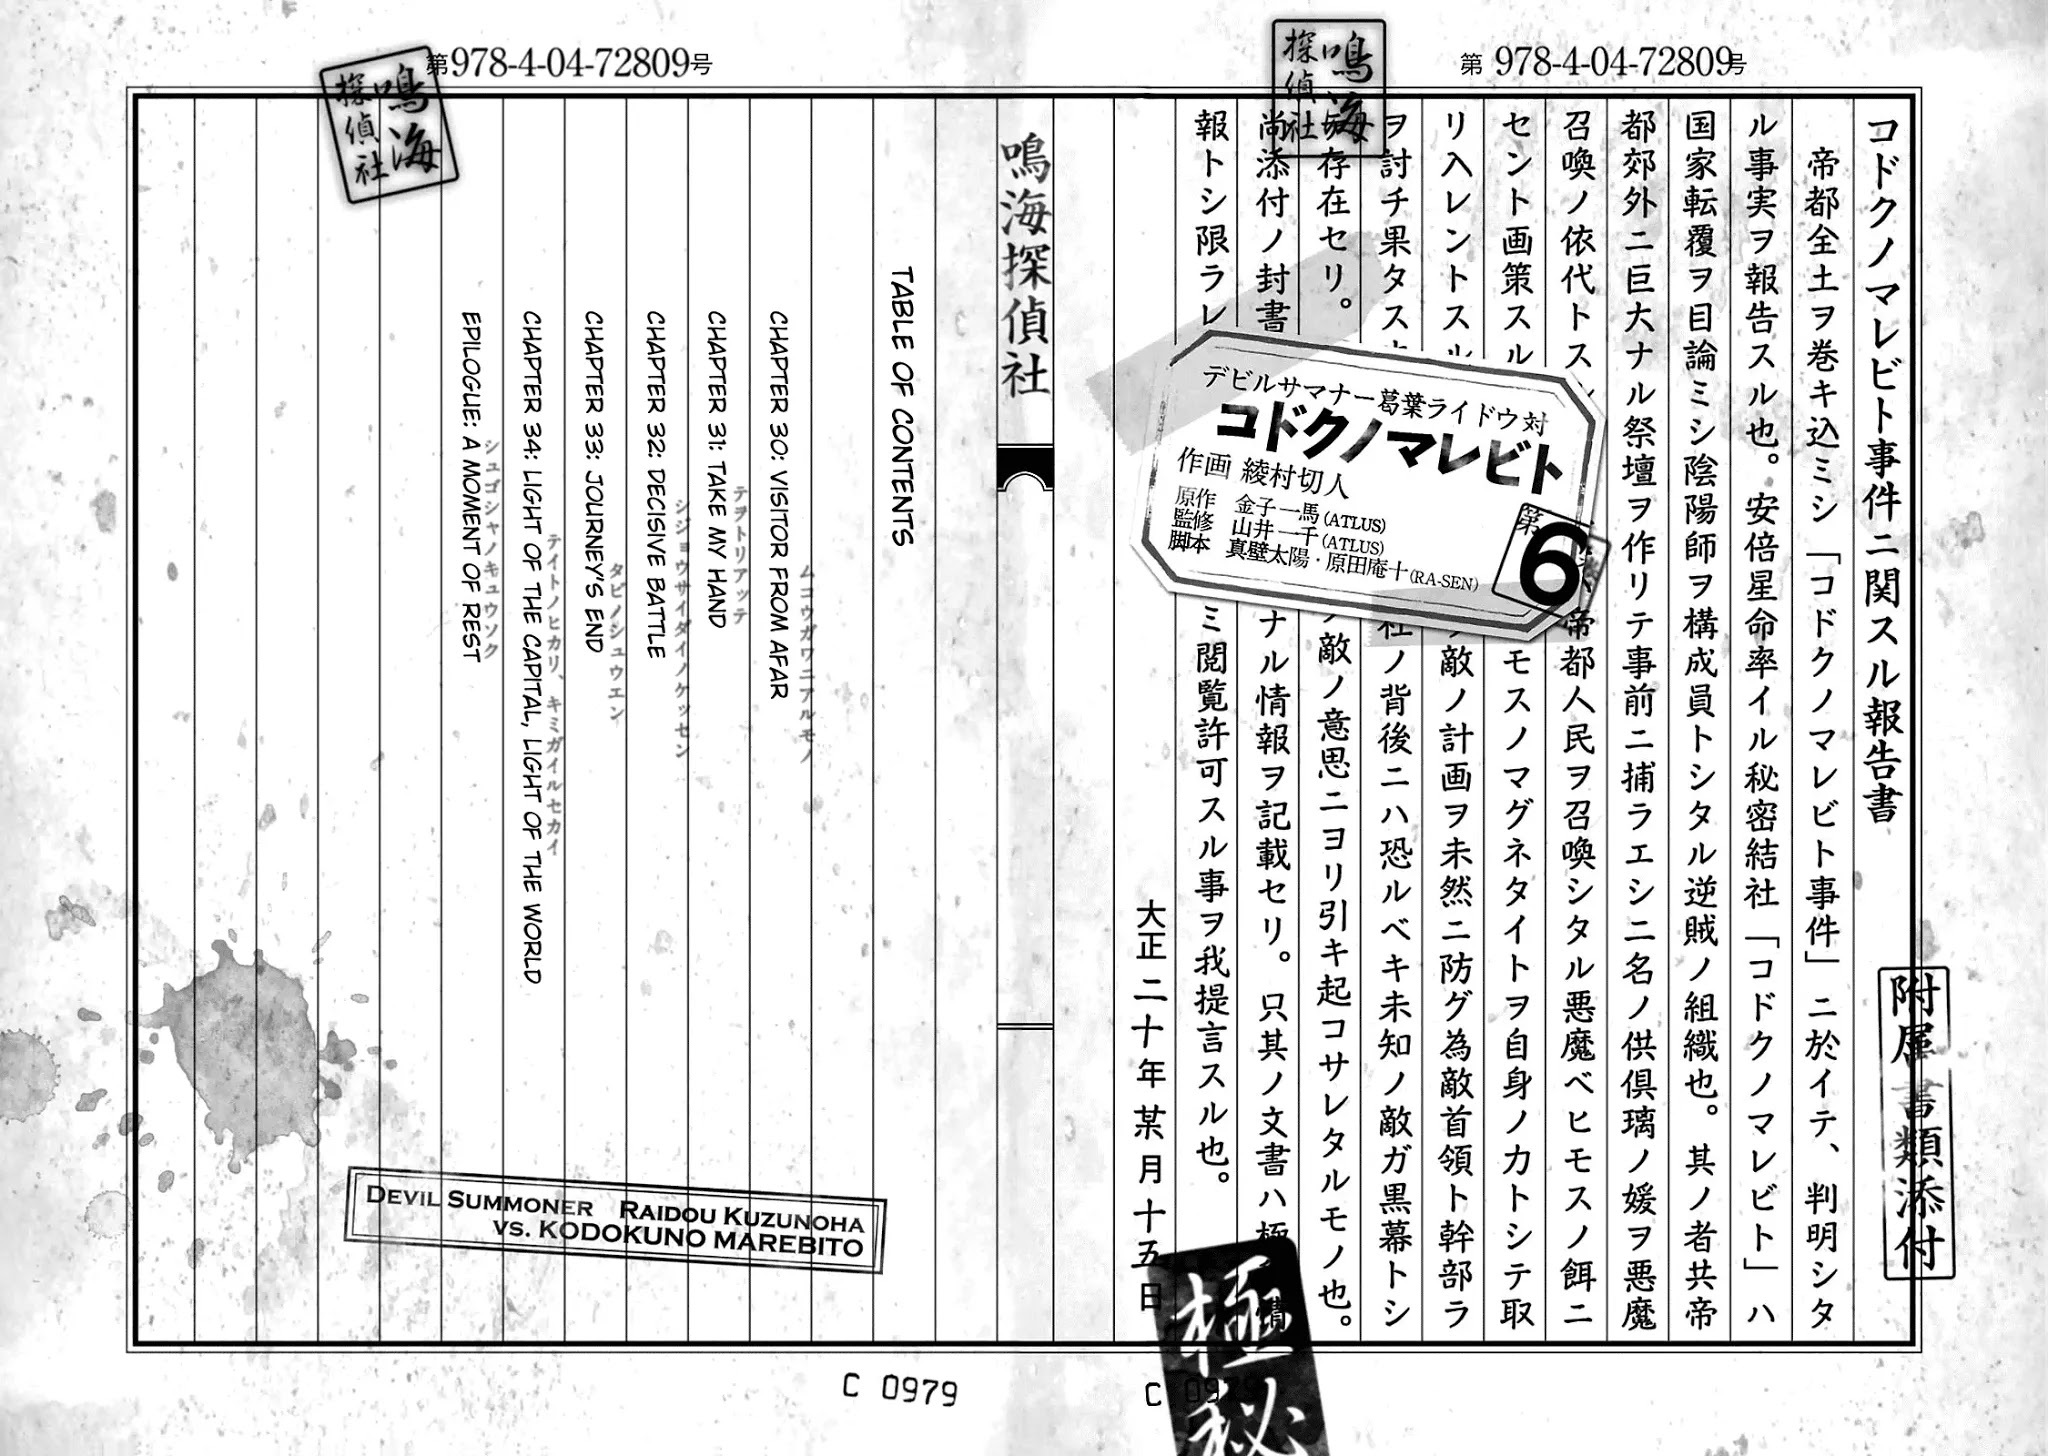 第978-4-04-72809号
鳴海
探偵社
コドクノマレビト事件ニ関スル報告書
附属書類添付
帝都全土ヲ巻キ込ミシ「コドクノマレビト事件」ニ於イテ、判明シタ
ル事実ヲ報告スル也。安倍星命率イル秘密結社「コドクノマレビト」ハ
国家転覆ヲ目論ミシ陰陽師ヲ構成員トシタル逆賊ノ組織也。其ノ者共帝
都郊外ニ巨大ナル祭壇ヲ作リテ事前ニ捕ラエシ二名ノ供倶璃ノ媛ヲ悪魔
召喚ノ依代トス
帝都人民ヲ召喚シタル悪魔ベヒモスノ餌ニ
セント画策スル
モスノマグネタイトヲ自身ノ力トシテ取
リ入レントスル
敵ノ計画ヲ未然ニ防グ為敵首領ト幹部ラ
ヲ討チ果タス
社ノ背後ニハ恐ルベキ未知ノ敵ガ黒幕トシ
存在セリ。
敵ノ意思ニヨリ引キ起コサレタルモノ也。
尚添付ノ封書
ナル情報ヲ記載セリ。只其ノ文書ハ極
報トシ限ラレ
ミ閲覧許可スル事ヲ我提言スル也。
大正二十年某月十五日
極秘
デビルサマナー葛葉ライドウ対
コドクノマレビト
第6
作画 綾村切人
原作 金子一馬(ATLUS)
監修 山井一千(ATLUS)
脚本 真壁太陽・原田庵十(RA-SEN)
C 0979
鳴海探偵社
第978-4-04-72809号
鳴海
探偵社
TABLE OF CONTENTS
ムコウガワニアルモノ
CHAPTER 30: VISITOR FROM AFAR
テヲトリアッテ
CHAPTER 31: TAKE MY HAND
シジョウサイダイノケッセン
CHAPTER 32: DECISIVE BATTLE
タビノシュウエン
CHAPTER 33: JOURNEY'S END
テイトノヒカリ、キミガイルセカイ
CHAPTER 34: LIGHT OF THE CAPITAL, LIGHT OF THE WORLD
シュゴシャノキュウソク
EPILOGUE: A MOMENT OF REST
DEVIL SUMMONER RAIDOU KUZUNOHA
VS. KODOKUNO MAREBITO
C 0979